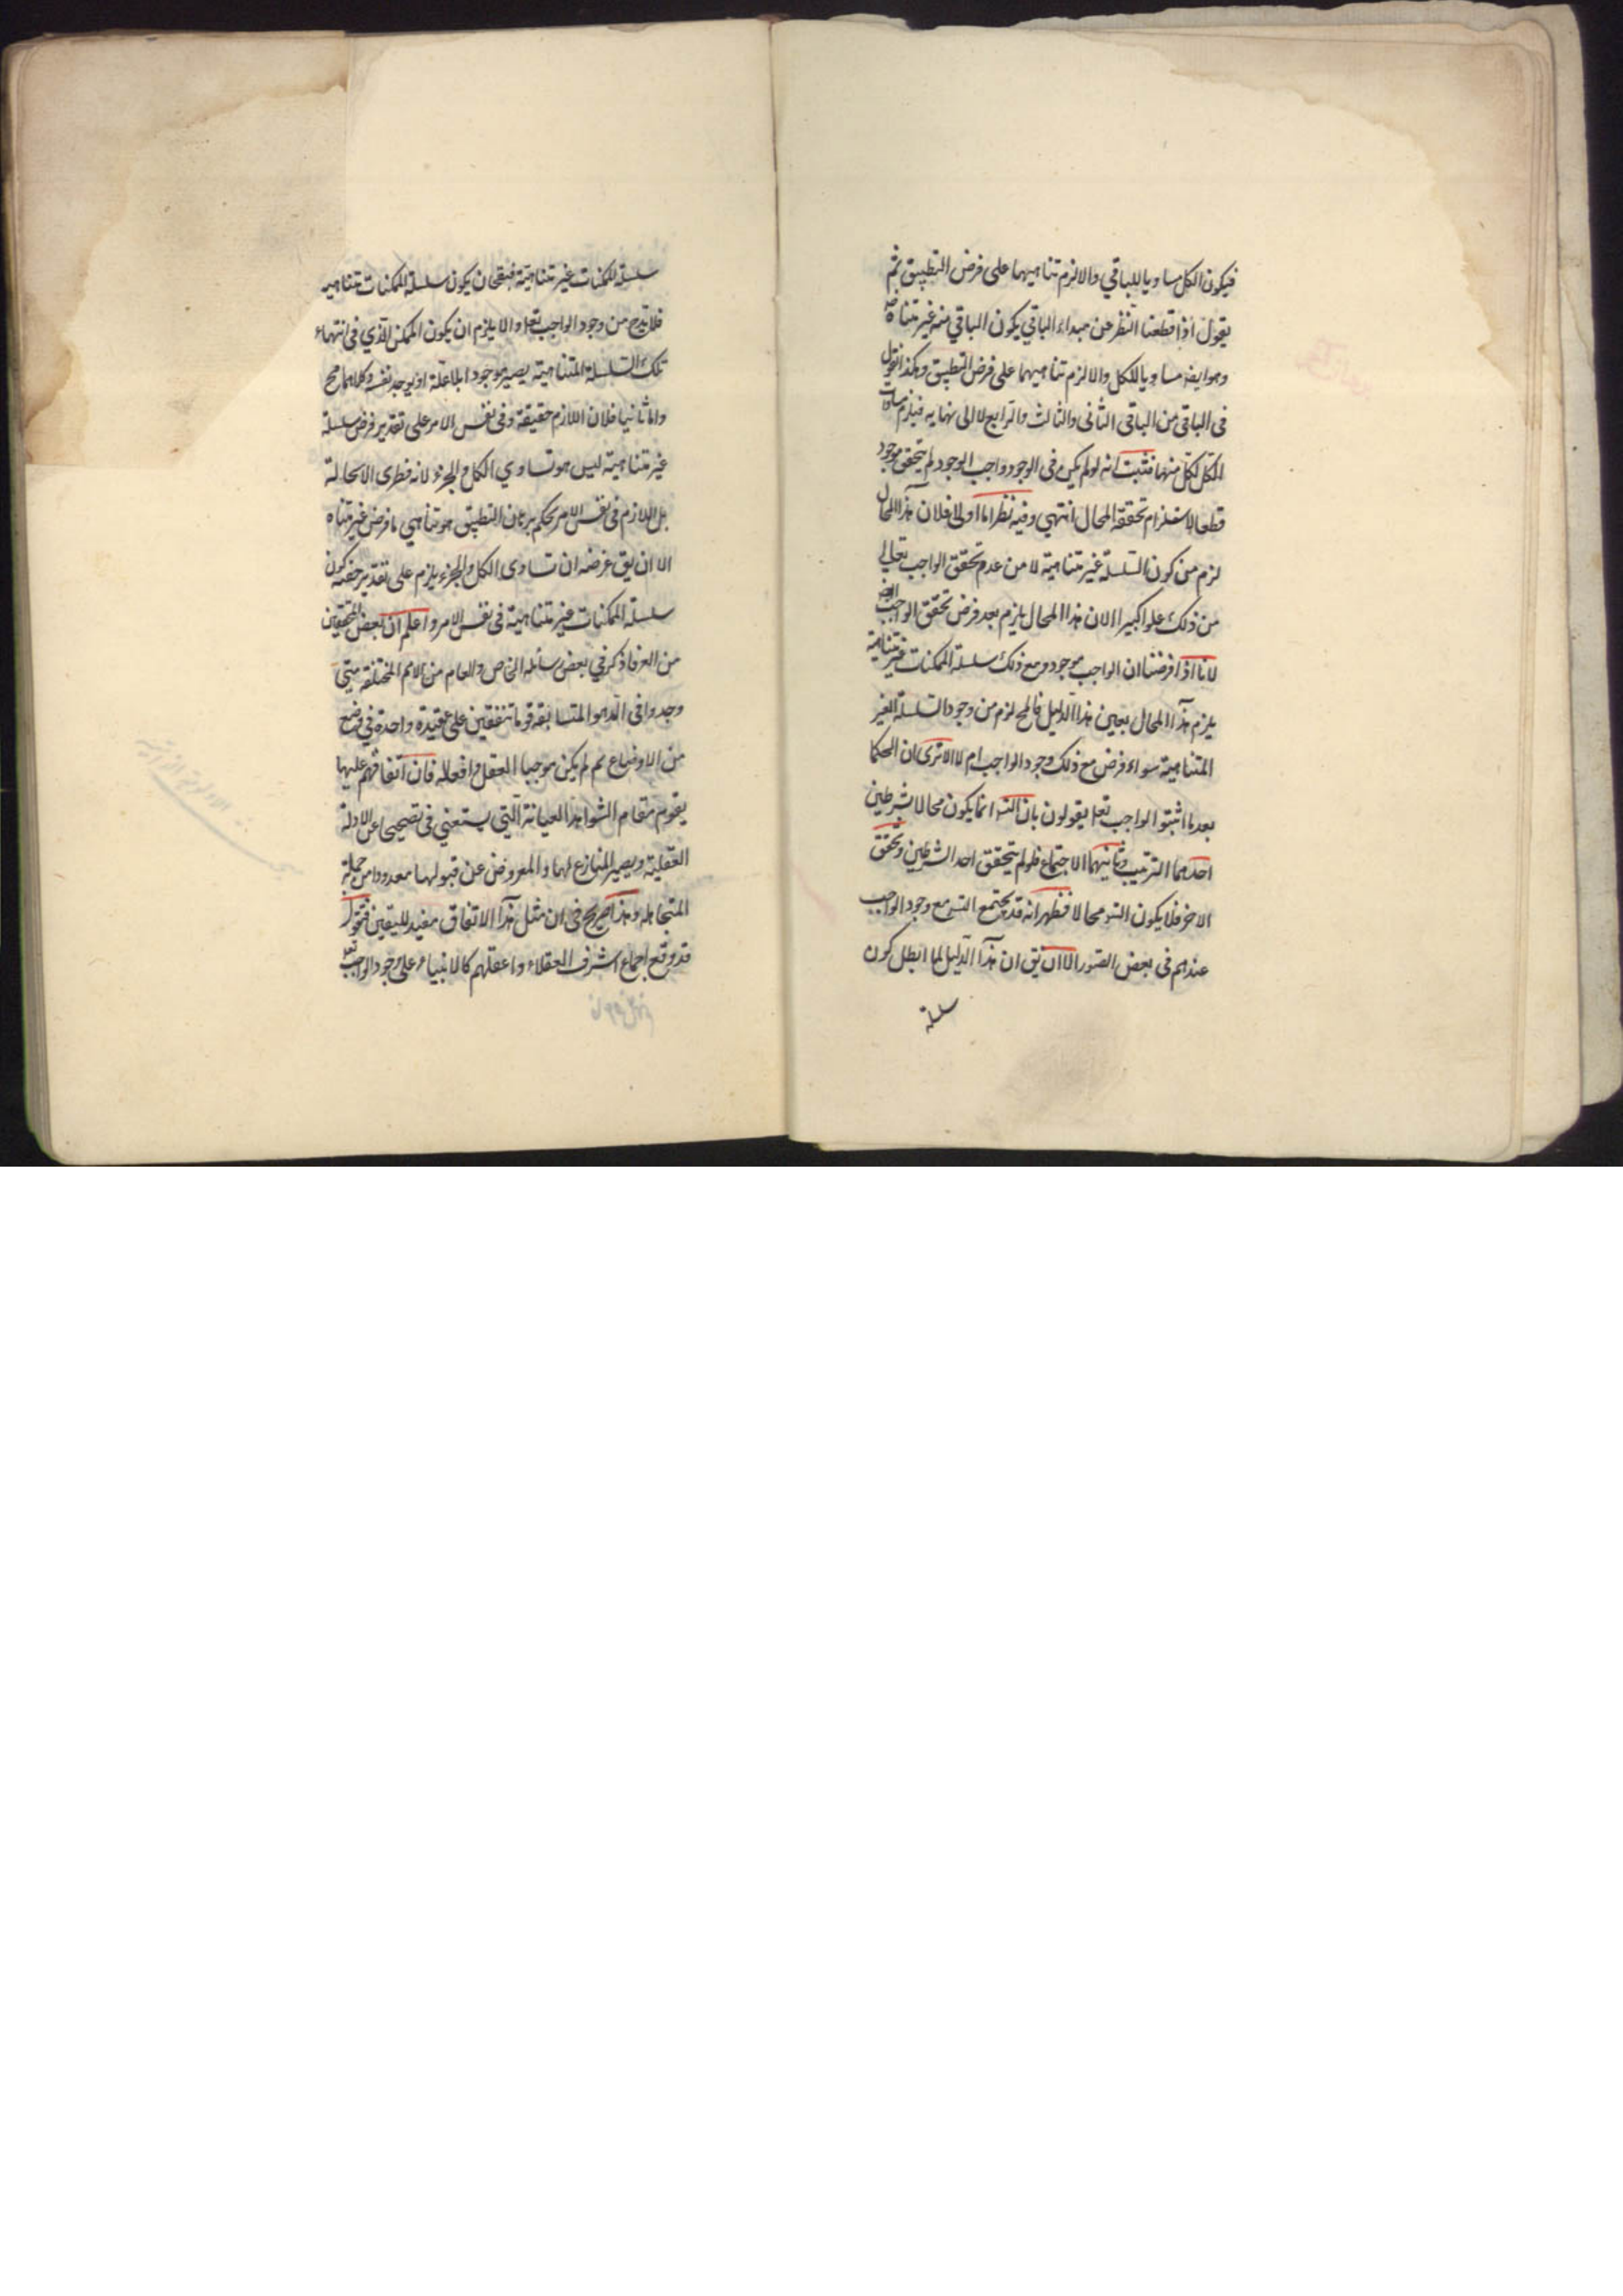 فيكون الكل مساويا للباقي والا لزم تناهيهما على فرض التطبيق ثم
يقول اذا قطعنا النظر عن مبداء الباقي يكون الباقي منه غير متناه
وهو ايضا مساويا للكل والا لزم تناهيهما على فرض التطبيق وهكذا نقول
فى الباقى من الباقى الثانى والثالث والرابع لا الى نهايه فيلزم مساوات
الكل لكل منها فثبت انه لو لم يكن فى الوجود واجب الوجود لم يتحقق موجود
قطعا لاستلزام تحققه المحال انتهي وفيه نظر اما اولا فلان هذا المحال
لزم من كون السلسلة غير متناهية لا من عدم تحقق الواجب تعالي
من ذلك علوا كبيرا الان هذا المحال يلزم بعد فرض تحقق الواجب ايضا
لانا اذا فرضنا ان الواجب موجود ومع ذلك سلسلة الممكنات غير متناهية
يلزم هذا المحال بعين هذا الدليل فالمح لزم من وجود السلسلة الغير
المتناهية سواء فرض مع ذلك وجود الواجب ام لا الا ترى ان الحكما
بعد ما اثبتوا الواجب تعا يقولون بان التسه انما يكون محالا بشرطين
احدهما الترتيب وثانيهما الاجتماع فلو لم يتحقق احد الشرطين وتحقق
الاخر فلا يكون التسه محالا فظهر انه قد يجتمع التسه مع وجود الواجب
عندهم فى بعض الصور الا ان يق ان هذا الدليل لما ابطل كون
سلسلة
سلسلة الممكنات غير متناهية فبقي ان يكون سلسلة الممكنات متناهيه
فلا بد من وجود الواجب تعا والا يلزم ان يكون الممكن الذي فى انتهاء
تلك السلسلة المتناهية يصير موجودا بلا علة او يوجد نفسه وكلاهما مح
واما ثانيا فلان اللازم حقيقة وفى نفس الامر على تقدير فرض سلسلة
غير متناهية ليس هو تساوي الكل والجزء لانه فطرى الاستحالة
بل اللازم فى نفس الامر بحكم برهان التطبيق هو تناهي ما فرض غير متناه
الا ان يق غرضه ان تساوى الكل والجزء يلزم على تقدير حقية كون
سلسلة الممكنات غير متناهية فى نفس الامر واعلم ان بعض المحققين
من العرفا ذكر في بعض رسائله الخاص والعام من الامم المختلفة متى
وجدوا فى الدهور المتسابقة قوما متفقين على عقيدة واحدة في وضع
من الاوضاع ثم لم يكن موجبا للعقل وافعاله فان اتفاقهم عليها
يقوم مقام الشواهد العيانية التي يستغني فى تصحيحها عن الادلة
العقلية ويصير المنازع لها والمعروض عن قبولها معدودا من جملة
المتجاهله وهذا صريح فى ان مثل هذا الاتفاق مفيد لليقين فنقول
قد وقع اجماع اشرف العقلاء واعقلهم كالانبياء على وجود الواجب تعا